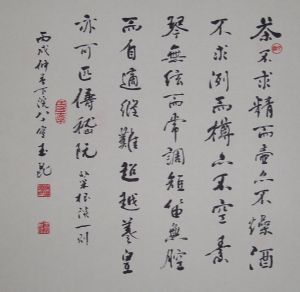 茶不求精而壺亦不燥酒
不求洌而樽亦不空素
琴無絃而常調短笛無腔
而自適縱難超越羲皇
亦可匹儔嵇阮 菜根談一則
丙戌仲春下浣